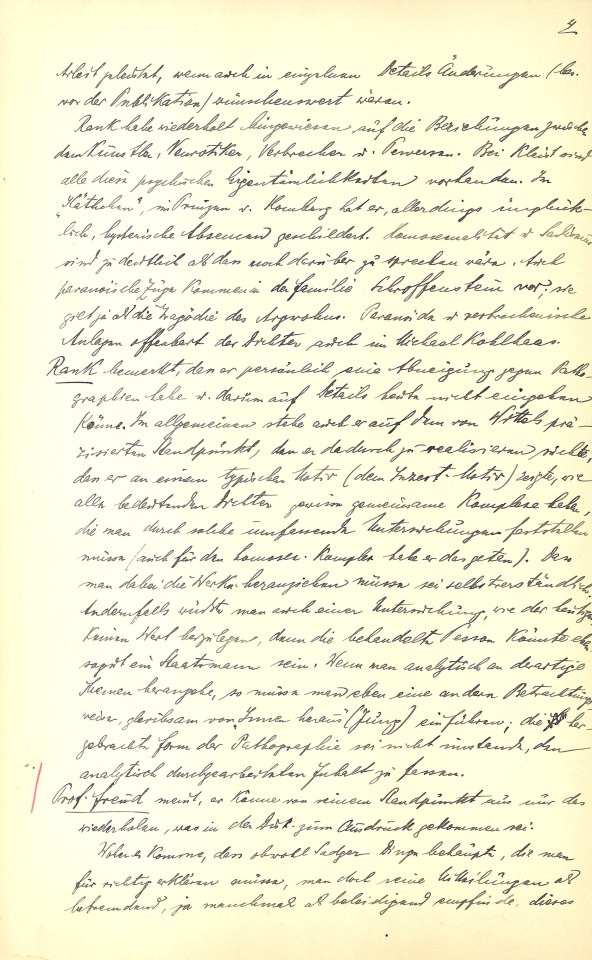 4
Arbeit plaidirt, wenn auch in einzelnen Details Änderungen (be-
vor der Publikation) wünschenswert wären.
Rank habe wiederholt hingewiesen auf die Beziehungen zwischen
dem Künstler, Neurotiker, Verbrecher u. Perversen. Bei Kleist sind
alle diese psychischen Eigentümlichkeiten vorhanden. Im
"Käthchen", im Prinzen v. Homburg hat er, allerdings unglück-
lich, hysterische Absencen geschildert. Homosexualität u Sadismus
sind zu deutlich als dass noch darüber zu sprechen wäre. Auch
paranoische Züge kommen in der Familie Schroffenstein vor, sie
gilt ja als die Tragödie des Argwohns. Paranoide u verbrecherische
Anlagen offenbart der Dichter auch im Michael Kohlhaas.
Rank bemerkt, dass er persönlich eine Abneigung gegen Patho-
graphien habe u. darum auf Details heute nicht eingehen
könne. Im allgemeinen stehe auch er auf dem von Wittels prä-
zisierten Standpunkt, den er dadurch zu realisieren suchte,
dass er an einem typischen Motiv (dem Inzest-Motiv) zeigte, wie
alle bedeutenden Dichter gewisse gemeinsame Komplexe haben,
die man durch solche umfassende Untersuchungen feststellen
müsse (auch für den homosex. Komplex habe er das getan). Dass
man dabei die Werke heranziehen müsse sei selbstverständlich.
Andernfalls würde man auch einer Untersuchung, wie der heutigen
keinen Wert beizulegen, denn die behandelte Person könnte eben-
sogut ein Staatsmann sein. Wenn man analytisch an derartige
Themen herangehe, so müsse man eben eine andere Betrachtungs-
weise, gleichsam von Innen heraus (Jung) einführen; die her-
gebrachte Form der Pathographie sei nicht imstande, den
analytisch durchgearbeiteten Inhalt zu fassen.
Prof. Freud meint, er könne von seinem Standpunkt aus nur das
wiederholen, was in der Disk. zum Ausdruck gekommen sei.
Woher es komme, dass obwohl Sadger Dinge behaupte, die man
für richtig erklären müsse, man doch seine Mitteilungen als
befremdend, ja manchmal als beleidigend empfinde, dieses